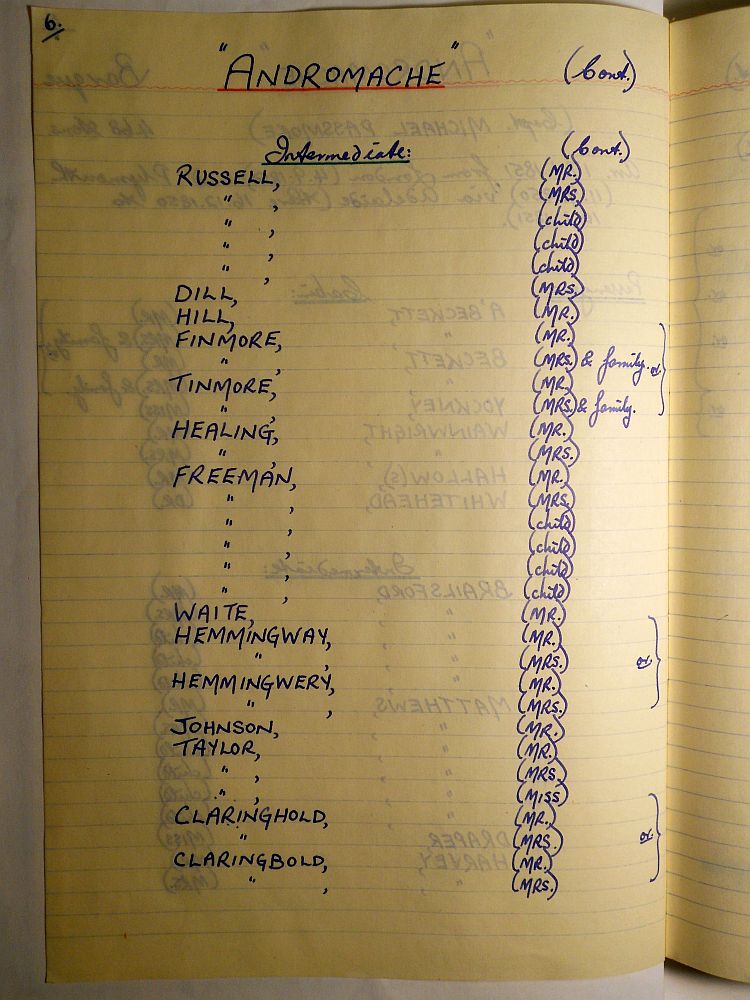 6.
"ANDROMACHE" (Cont.)
Intermediate: (Cont.)
RUSSELL, (MR.)
" , (MRS.)
" , (child)
" , (child)
" , (child)
DILL, (MRS.)
HILL, (MR.)
FINMORE, (MR.)
" , (MRS.) & family. or.
TINMORE, (MR.)
" , (MRS.) & family.
HEALING, (MR.)
" , (MRS.)
FREEMAN, (MR.)
" , (MRS.)
" , (child)
" , (child)
" , (child)
" , (child)
WAITE, (MR.)
HEMMINGWAY, (MR.)
" , (MRS.) or.
HEMMINGWERY, (MR.)
" , (MRS.)
JOHNSON, (MR.)
TAYLOR, (MR.)
" , (MRS.)
" , (MISS)
CLARINGHOLD, (MR.)
" , (MRS.) or.
CLARINGBOLD, (MR.)
" , (MRS.)